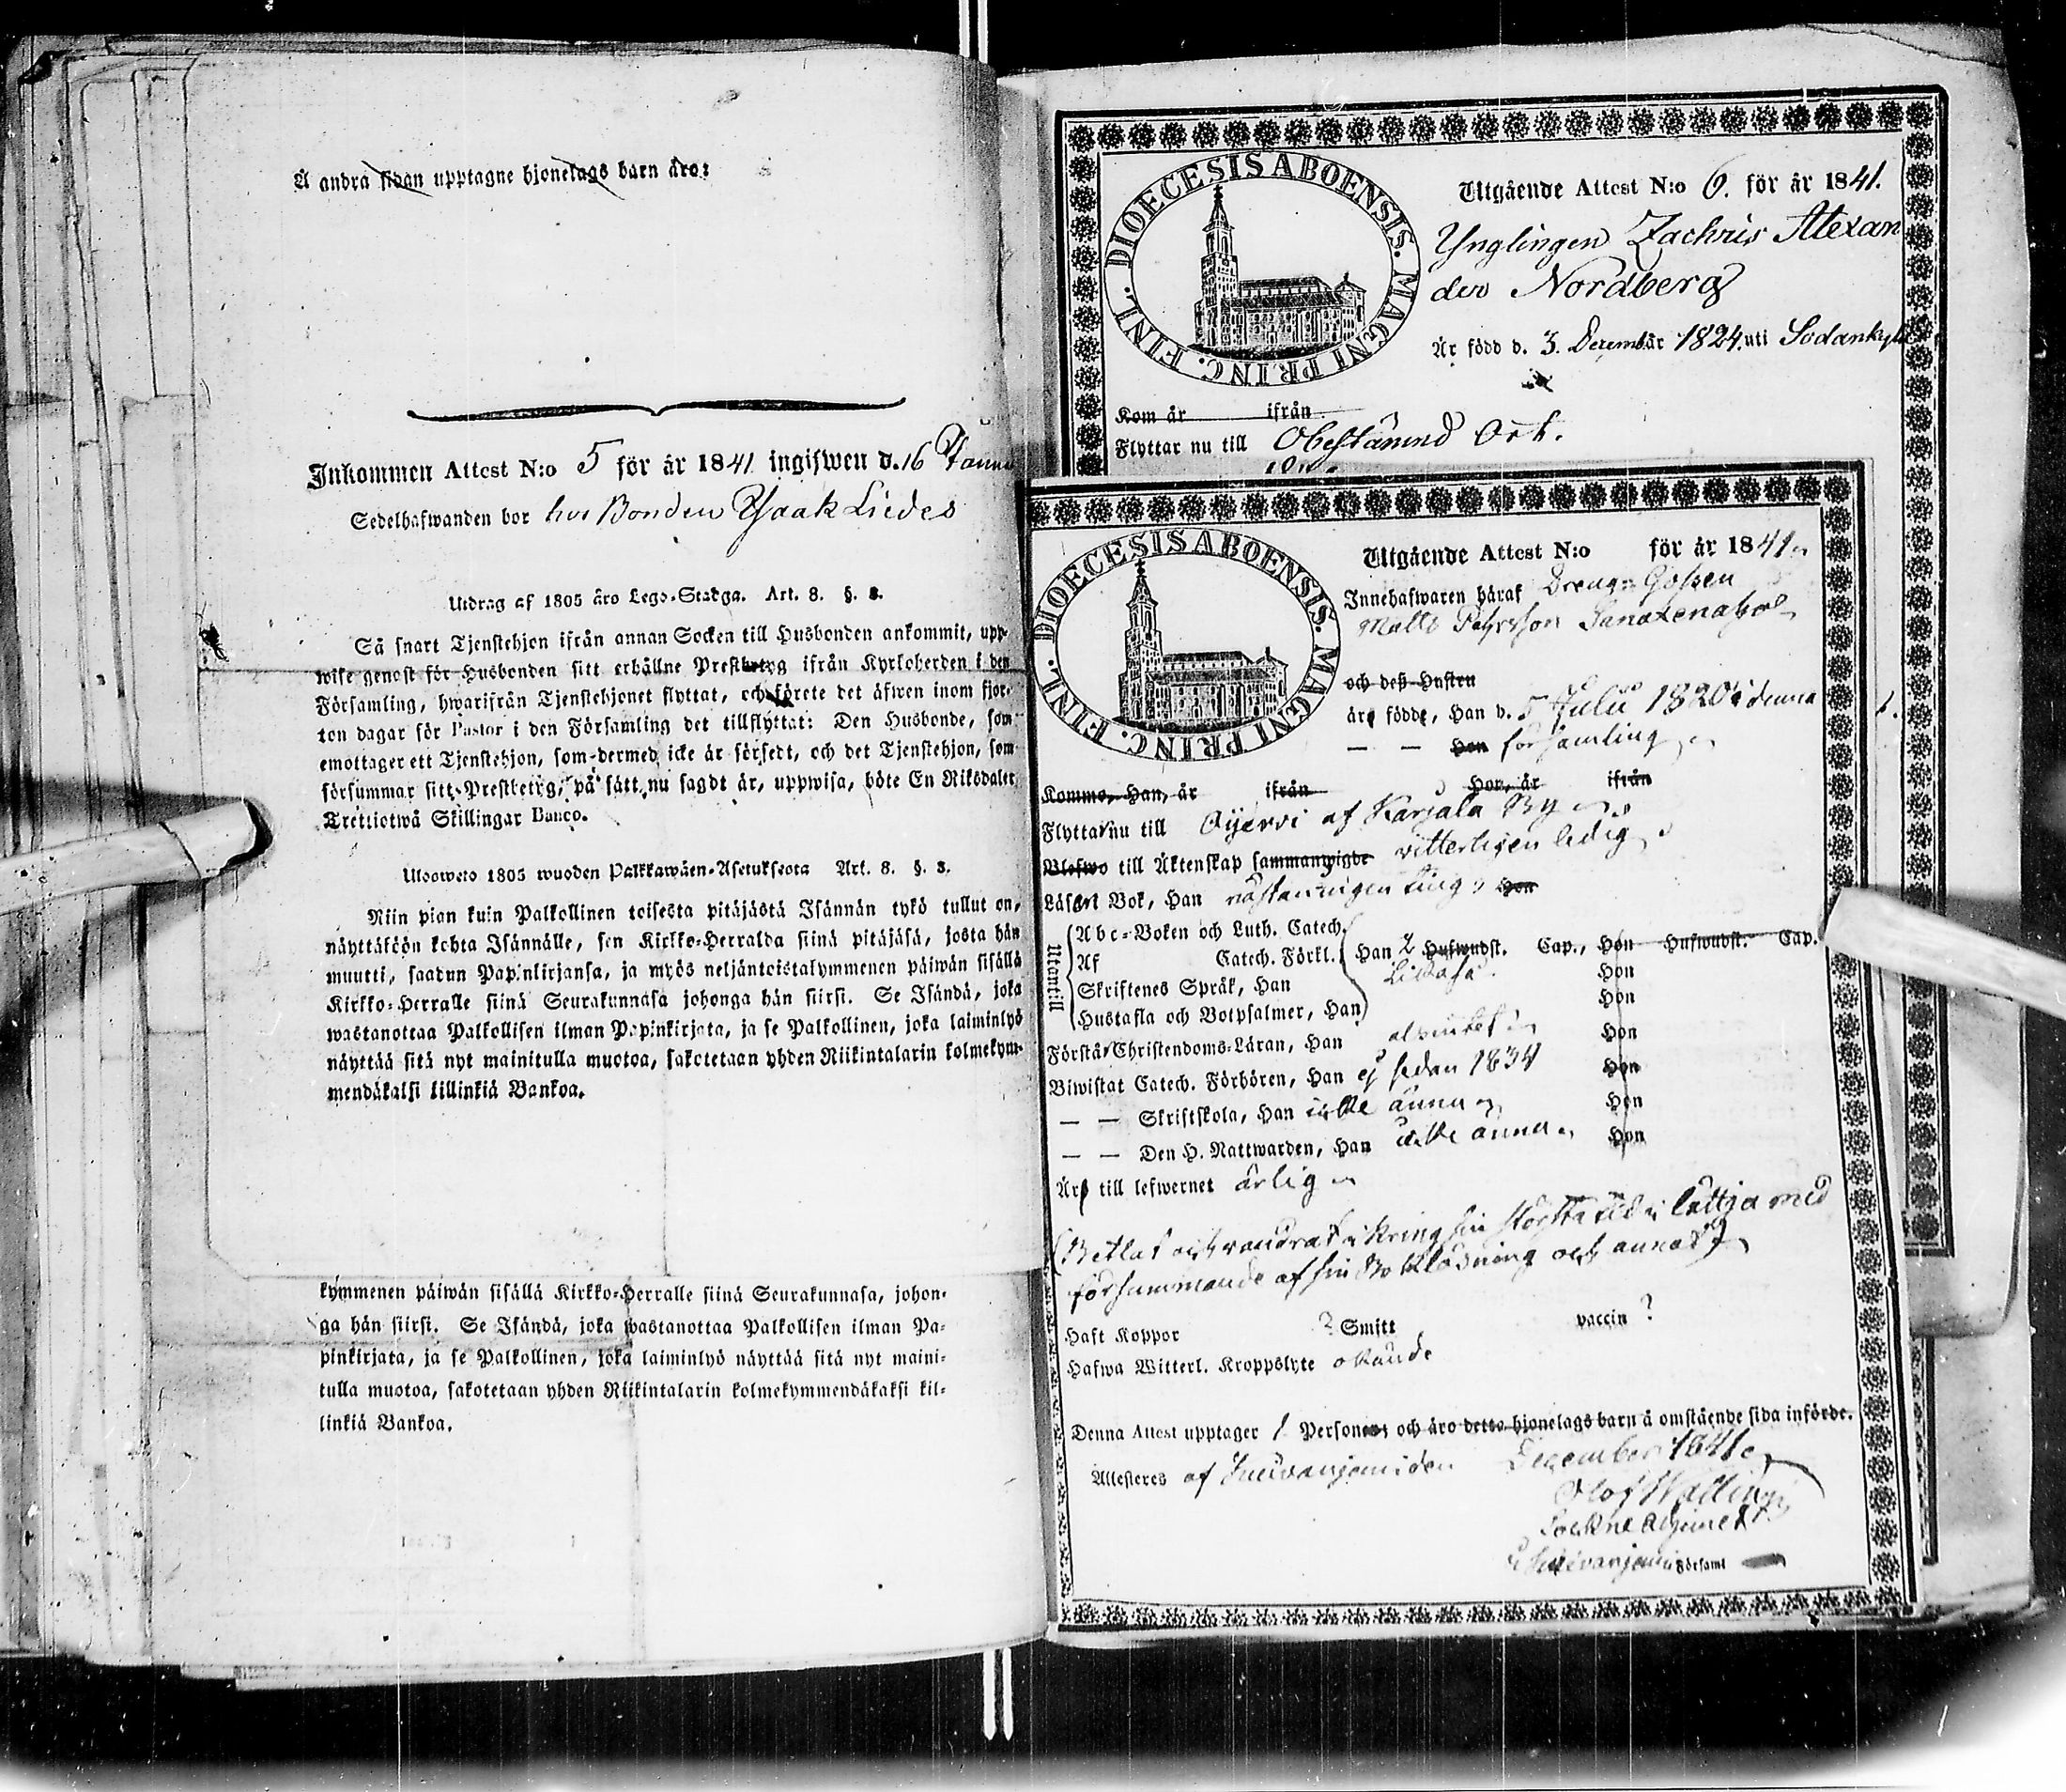 Å andra sidan upptagne hjonelags barn äro:
Inkommen Attest N:o 5 för år 1841 ingifwen d. 16
Sedelhafwanden bor hos Bonden Isaak Liedes
Utdrag af 1805 års Lego-Stadga. Art. 8. §. 3.
Så snart Tjenstehjon ifrån annan Socken till Husbonden ankommit, upp-
wise genast för Husbonden sitt erhållne Prestbetyg ifrån Kyrkoherden i den
Församling, hwarifrån Tjenstehjonet flyttat, och förete det äfwen inom fjor-
ton dagar för Pastor i den Församling det tillflyttat: Den Husbonde, som
emottager ett Tjenstehjon, som dermed icke är försedt, och det Tjenstehjon, som
försummar sitt Prestbetyg, på sätt nu sagdt är, uppwisa, böte En Riksdaler
Trettiotwå Skillingar Banco.
Ulosweto 1805 wuoden Palkkawäen-Asetuksesta Art. 8. §. 3.
Niin pian kuin Palkollinen toisesta pitäjästä Isännän tykö tullut on,
näyttäköön kohta Isännälle, sen Kirkko-Herralda siinä pitäjäsä, josta hän
muutti, saadun Papinkirjansa, ja myös neljäntoistakymmenen päiwän sisällä
Kirkko-Herralle siinä Seurakunnasa johonga hän siirsi. Se Isändä, joka
wastanottaa Palkollisen ilman Papinkirjata, ja se Palkollinen, joka laiminlyö
näyttää sitä nyt mainitulla muotoa, sakotetaan yhden Riikintalarin kolmekym-
mendäkaksi killinkiä Bankoa.
kymmenen päiwän sisällä Kirkko-Herralle siinä Seurakunnasa, johon-
ga hän siirsi. Se Isändä, joka wastanottaa Palkollisen ilman Pa-
pinkirjata, ja se Palkollinen, joka laiminlyö näyttää sitä nyt maini-
tulla muotoa, sakotetaan yhden Riikintalarin kolmekymmendäkaksi kil-
linkiä Bankoa.
DIOECESIS ABOENSIS. MAGNI PRINC. FINL.
Utgående Attest N:o 6. för år 1841.
Ynglingen Zachris Alexan
der Nordberg
Är född d. 3. Decemb. år 1824. uti Sodankylä
Kom år ifrån
Flyttar nu till Obestämnd Ort.
DIOECESIS ABOENSIS. MAGNI PRINC. FINL.
Utgående Attest N:o för år 1841
Innehafwaren häraf Drenge Gossen
Matts Pehrsson
och deß Hustru
äro födde, Han d. 5 Julii 1820 i denna
— — Hon församling
Komme, Han, år ifrån Hon, år ifrån
Flyttar nu till Oijervi af Karjala By
Blefwo till Äktenskap sammanwigde vitterligen ledig
Läser i Bok, Han nästan ingen ting Hon
Utantill
Abc-Boken och Luth. Catech.
Af Catech. Förkl. Han 2 Hufwudst. Cap., Hon Hufwudst. Cap.
Skriftenes Språk, Han Likaså Hon
Hustafla och Botpsalmer, Han Hon
Förstår Christendoms-Läran, Han Hon
Biwistat Catech. Förhören, Han ej sedan 1834 Hon
— — Skriftskola, Han icke ännu Hon
— — Den H. Nattwarden, Han icke ännu Hon
Äro till lefwernet ärlig
(Betlat och vandrat i kring sin största tid i lättja med
försummande af sin Bokläsning och annat)
Haft Koppor ? Smitt vaccin ?
Hafwa Witterl. Kroppslyte okände
Denna Attest upptager 1 Personer; och äro detta hjonelags barn å omstående sida införde.
Attesteres af Kuivaniemi den December 1841
Olof Wallin
Sockne Adjunct
i Kuivaniemi Församl